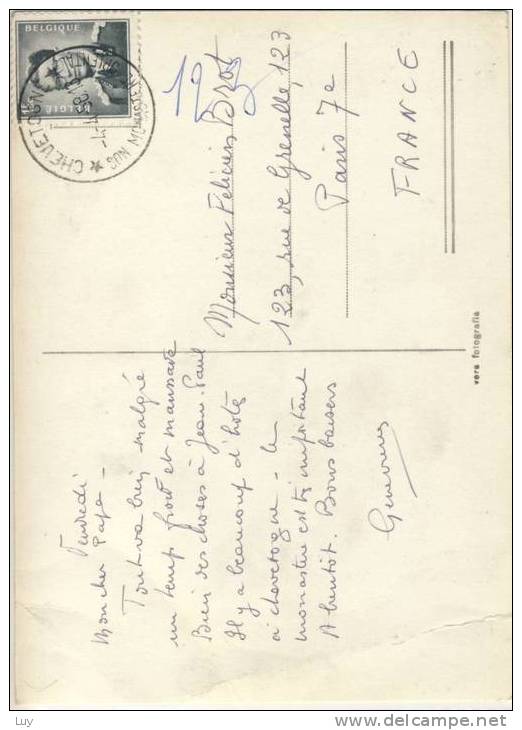 Vendredi
Mon cher Papa -
Tout va bien malgré
un temps froid et maussade
Bien des choses à Jean-Paul
Il y a beaucoup d'hôtes
à chevetogne - le
monastère est très important
A bientôt. Bons baisers
Geneviève
BELGIQUE
BELGIË
CHEVETOGNE
SON MONASTÈRE ORIENTAL
Monsieur Félicien Brot
123, rue de Grenelle, 123
Paris 7e
FRANCE
vera fotografia
Luy
www.delcampe.net